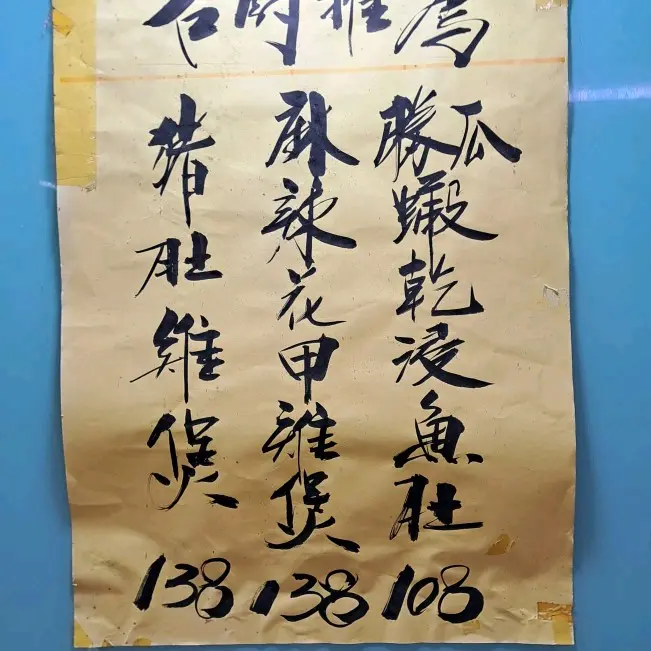 名廚推薦
勝瓜蝦乾浸魚肚 108
麻辣花甲雞煲 138
豬肚雞煲 138